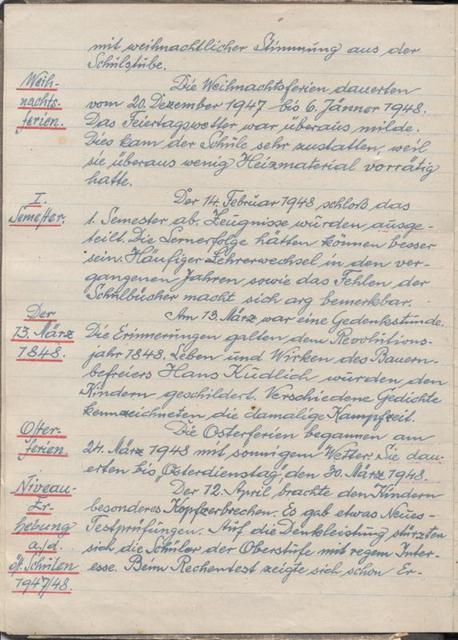 mit weihnachtlicher Stimmung aus der
Schulstube.
Weih-
nachts-
ferien.
Die Weihnachtsferien dauerten
vom 20. Dezember 1947 bis 6. Jänner 1948.
Das Feiertagswetter war überaus milde.
Dies kam der Schule sehr zustatten, weil
sie überaus wenig Heizmaterial vorrätig
hatte.
I.
Semester.
Der 14. Februar 1948 schloß das
1. Semester ab. Zeugnisse wurden ausge-
teilt. Die Lernerfolge hätten können besser
sein. Häufiger Lehrerwechsel in den ver-
gangenen Jahren sowie das Fehlen der
Schulbücher macht sich arg bemerkbar.
Der
13. März
1848.
Am 13. März war eine Gedenkstunde.
Die Erinnerungen galten dem Revolutions-
jahr 1848. Leben und Wirken des Bauern-
befreiers Hans Kudlich wurden den
Kindern geschildert. Verschiedene Gedichte
kennzeichneten die damalige Kampfzeit.
Oster-
ferien.
Die Osterferien begannen am
24. März 1948 mit sonnigem Wetter. Sie dau-
erten bis Osterdienstag, den 30. März 1948.
Niveau-
Er-
hebung
a./d.
öff. Schulen
1947/48.
Der 12. April, brachte den Kindern
besonderes Kopfzerbrechen. Es gab etwas Neues -
Testprüfungen. Auf die Denkleistung stürzten
sich die Schüler der Oberstufe mit regem Inter-
esse. Beim Rechentest zeigte sich schon Er-